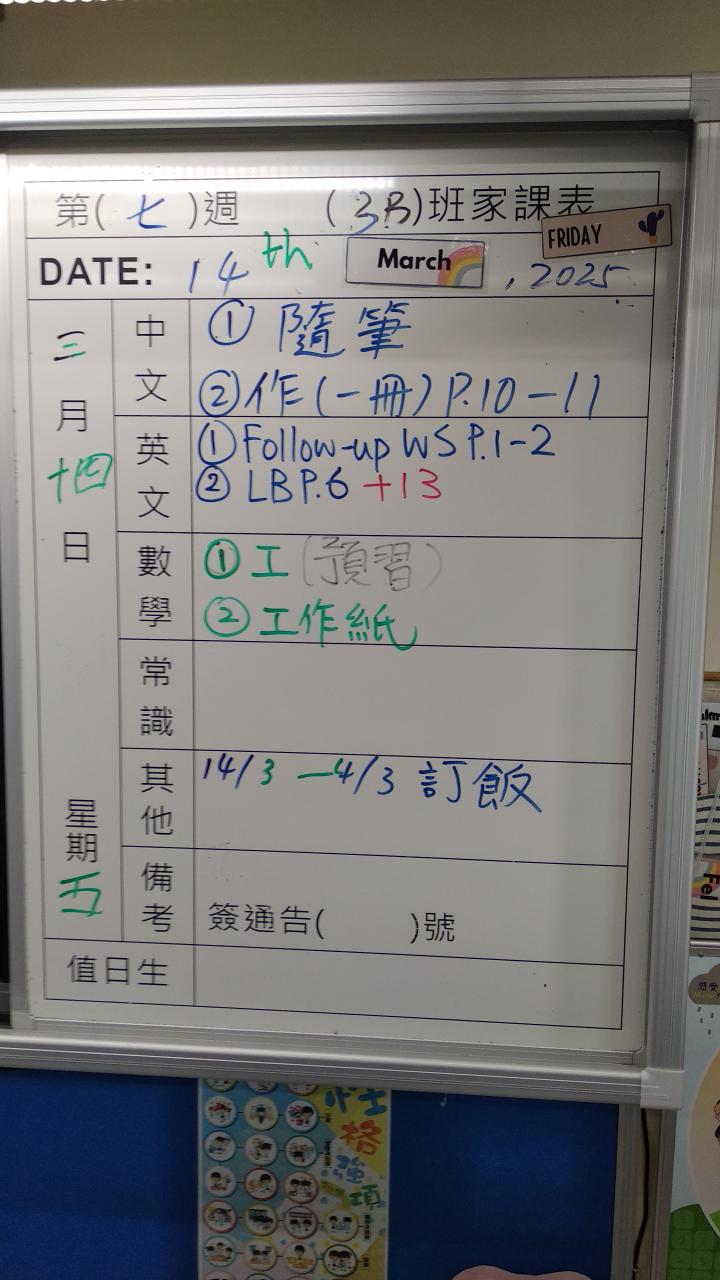 第(七)週 (3B)班家課表
FRIDAY
DATE: 14th March , 2025
三月十四日 星期五
中文
① 隨筆
② 作(一冊) P.10-11
英文
① Follow-up WS P.1-2
② LB P.6 +13
數學
① 工(預習)
② 工作紙
常識
其他
14/3 — 4/3 訂飯
備考
簽通告( )號
值日生
性格強項
Fel
感受